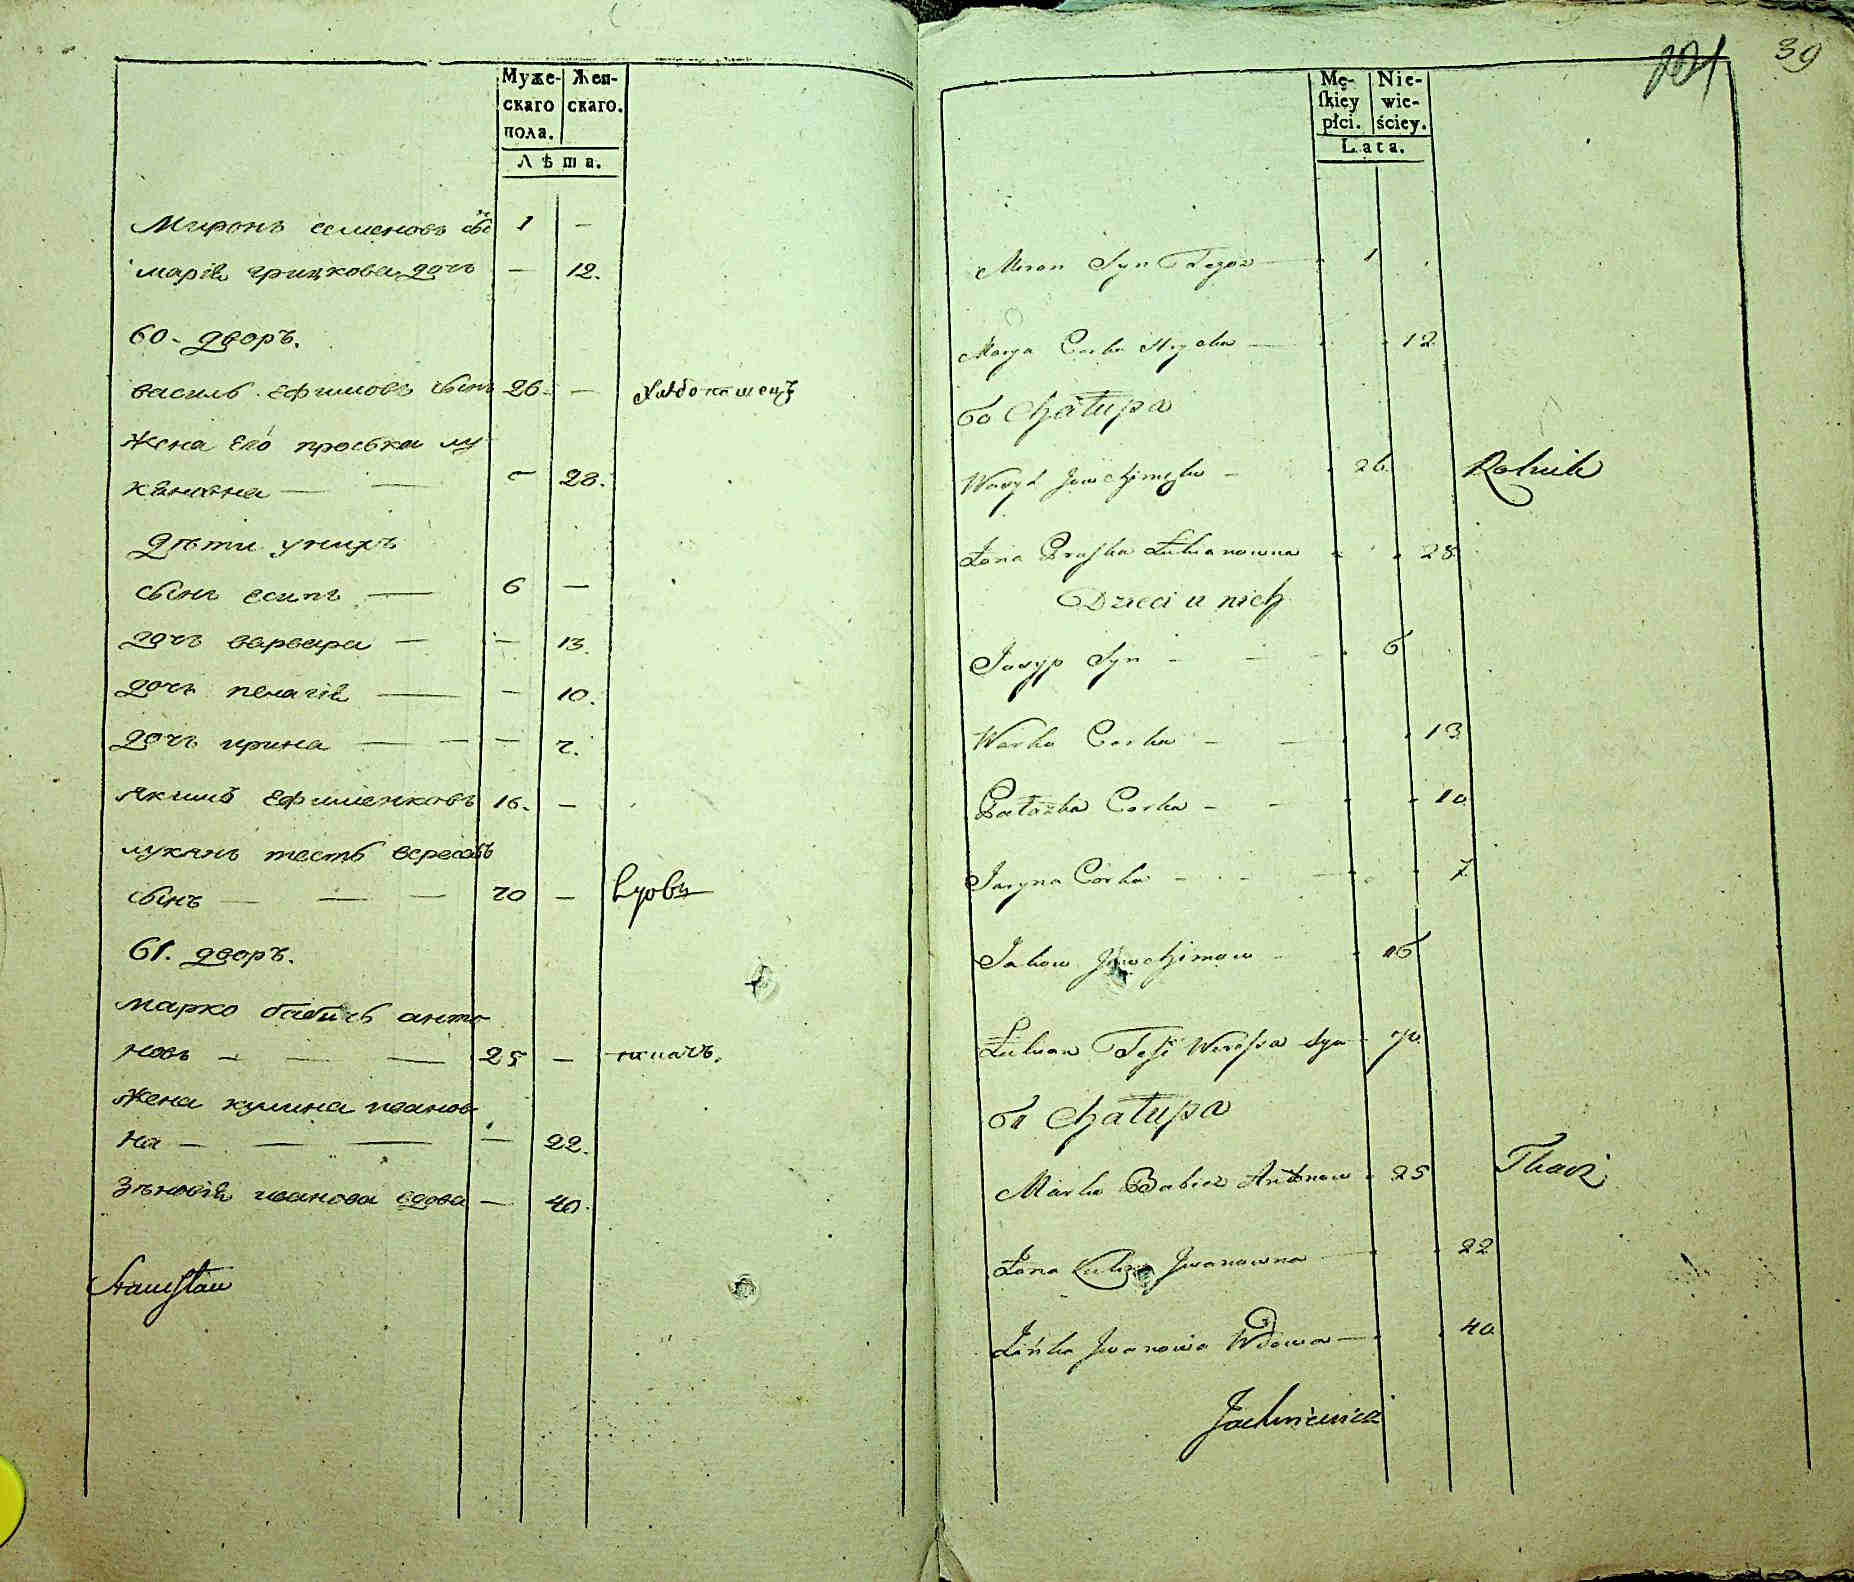 Муже- Жен-
скаго скаго.
пола.
Лѣта.
Миронъ семеновъ 1 —
марія грицкова дочь — 12.
60. дворъ.
василь ефимовъ сынъ 26. — хлѣбопашецъ
жена его проська лу-
кяновна — — — 28.
дѣти унихъ
сынъ есипъ — 6 —
дочь варвара — — 13.
дочь пелагія — — 10.
дочь ирина — — — 7.
якимъ ефименковъ 16. —
лукянъ тесть вересовъ
сынъ — — — 70 —
61. дворъ.
марко бабичъ анто-
новъ — — — 25 — ткачъ.
жена кулина иванов-
на — — — — 22.
зѣновія иванова вдова — 40.
Stanisław
39
Mę- Nie-
skiey wie-
płci. ściey.
Lata.
Miron Syn 1
Marya Corka Hrycka — 12
60 Chałupa
Wasyl Jowchimenko — 26 Rolnik
Żona Praska Łukianowna 28
Dzieci u nich
Josyp Syn — — 6
Warka Corka — — 13
Pałażka Corka — — 10
Jaryna Corka — — 7
Jakow Jowchimow — 16
Łukian Teść Weressa Syn 70
61 Chałupa
Marko Babicz Antonow 25 Tkacz
Żona Kulina Jwanowna — 22
Zińka Jwanowa Wdowa — 40